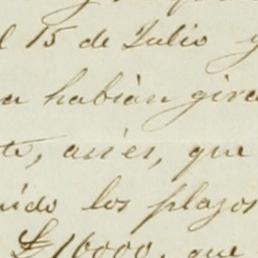 l 15 de Julio y
a habian gira
te, asies, que
nido los plazos
£16000, que